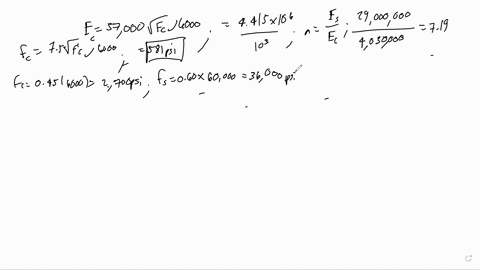 E_c = 57,000 √F_c , 6000 ; = 4.415x10^6 / 10^3 ; n = E_s / E_c : 29,000,000 / 4,030,000 = 7.19
f_c = 7.5 √F_c , 6000 ; = 581 psi
f_c = 0.45(6000) = 2,700 psi ; f_s = 0.60 x 60,000 = 36,000 psi